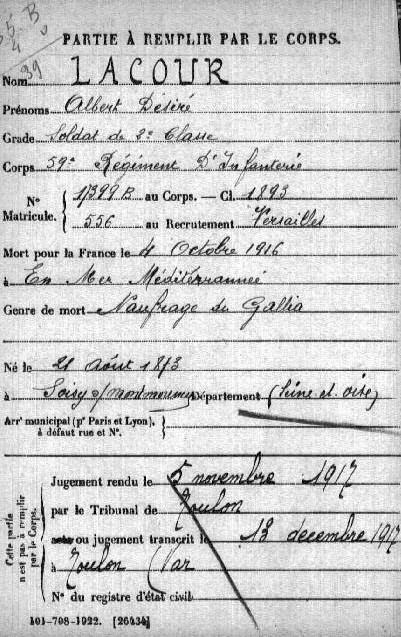 B
5
4
39
PARTIE À REMPLIR PAR LE CORPS.
Nom LACOUR
Prénoms Albert Désiré
Grade Soldat de 2e Classe
Corps 59e Régiment D'Infanterie
N° Matricule. 1/399 B au Corps. — Cl. 1893
556 au Recrutement Versailles
Mort pour la France le 4 Octobre 1916
à En Mer Méditérrannée
Genre de mort Naufrage du Gallia
Né le 21 Août 1873
à Soisy s/ montmorency Département (Seine et oise)
Arrt municipal (pr Paris et Lyon),
à défaut rue et N°.
Cette partie n'est pas à remplir par le Corps.
Jugement rendu le 5 novembre 1917
par le Tribunal de Toulon
acte ou jugement transcrit le 13 decembre 1917
à Toulon (Var
N° du registre d'état civil
101-708-1922. [26434]